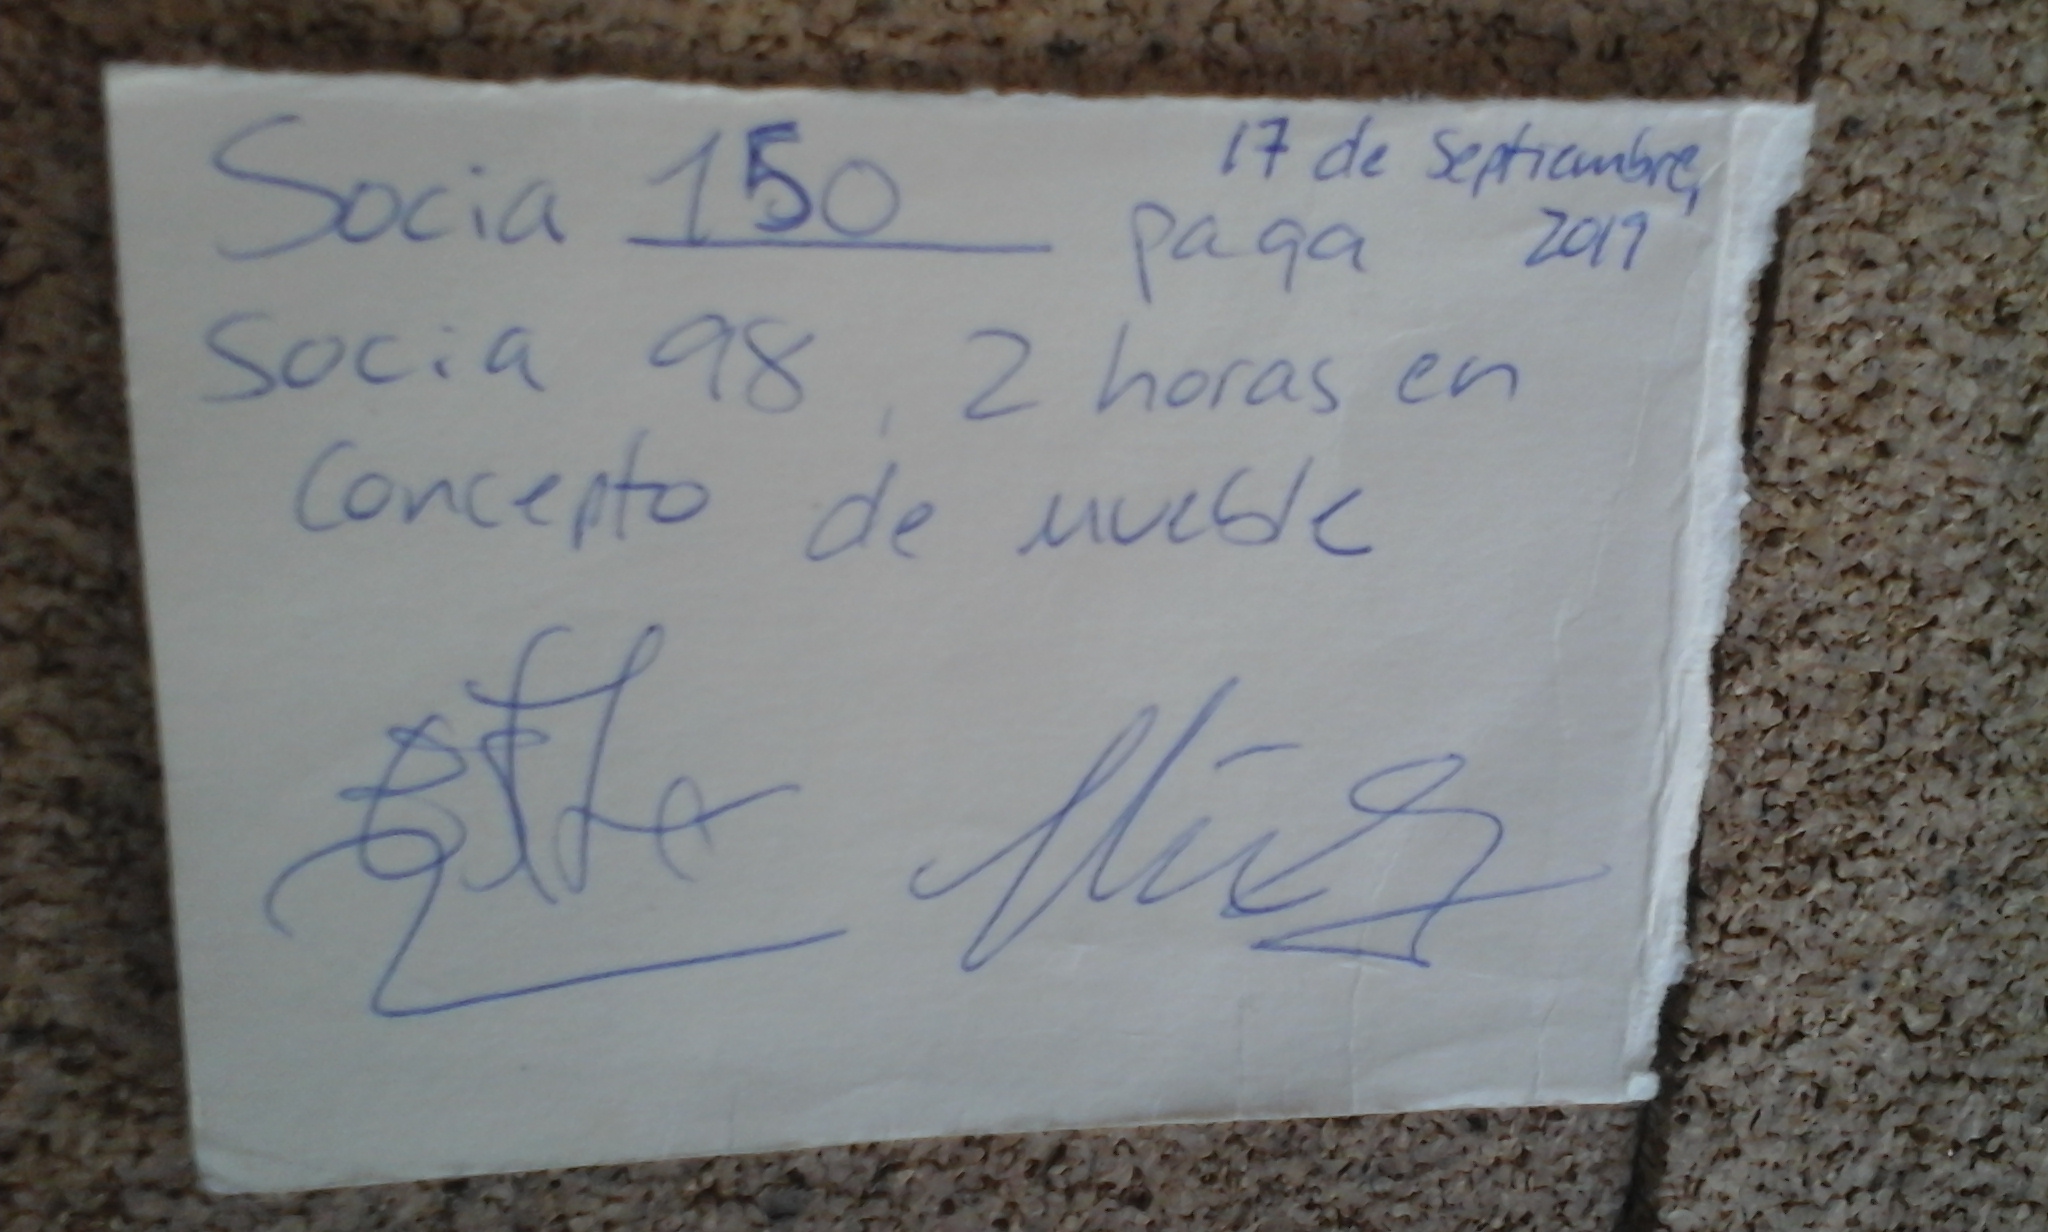 17 de Septiembre,
2019
Socia 150 paga
Socia 98, 2 horas en
concepto de mueble